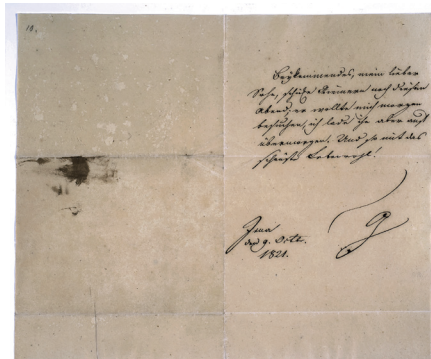 10.
Beykommendes, mein lieber
Sohn, schicke Riemern noch diesen
Abend; er wollte mich morgen
besuchen, ich lade ihn aber auf
übermorgen. Und so mit das
schönste Lebewohl!
Jena
den 9. Octbr.
1821.
G